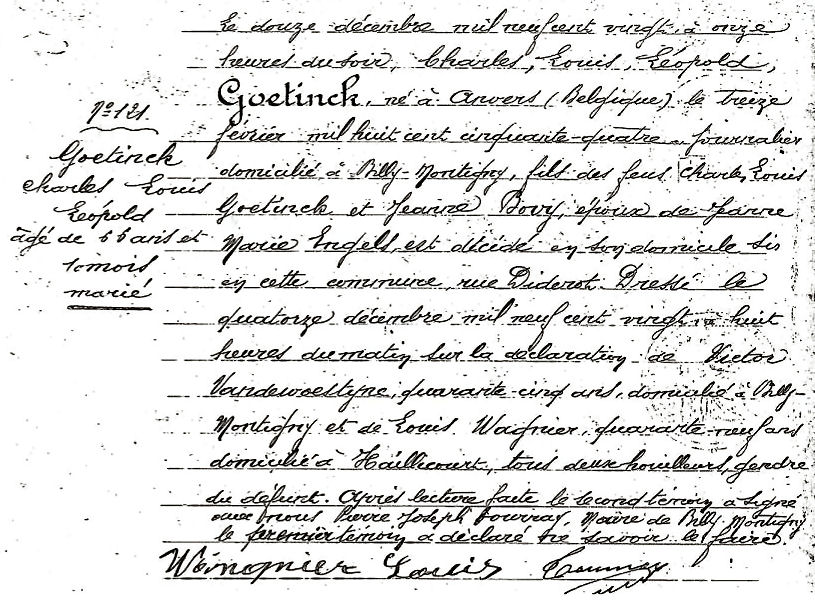 Le douze décembre mil neuf cent vingt, à onze
heures du soir, Charles, Louis, Léopold,
Goetinck, né à Anvers (Belgique) le treize
février mil huit cent cinquante-quatre, journalier
domicilié à Billy-Montigny, fils des feus Charles Louis
Goetinck et Jeanne Bovy, époux de Jeanne
Marie Engels, est décédé en son domicile sis
en cette commune, rue Diderot. Dressé le
quatorze décembre mil neuf cent vingt, à huit
heures du matin sur la déclaration de Victor
Vandewoestyne, quarante-cinq ans, domicilié à Billy-
Montigny et de Louis Wagnier, quarante-neuf ans
domicilié à Haillicourt, tous deux houilleurs, gendre
du défunt. Après lecture faite le second témoin a signé
avec nous Pierre Joseph Tourray, Maire de Billy-Montigny
le premier témoin a déclaré ne savoir le faire.
Louis
No 121
Goetinck
Charles Louis
Léopold
âgé de 66 ans et
10 mois
marié